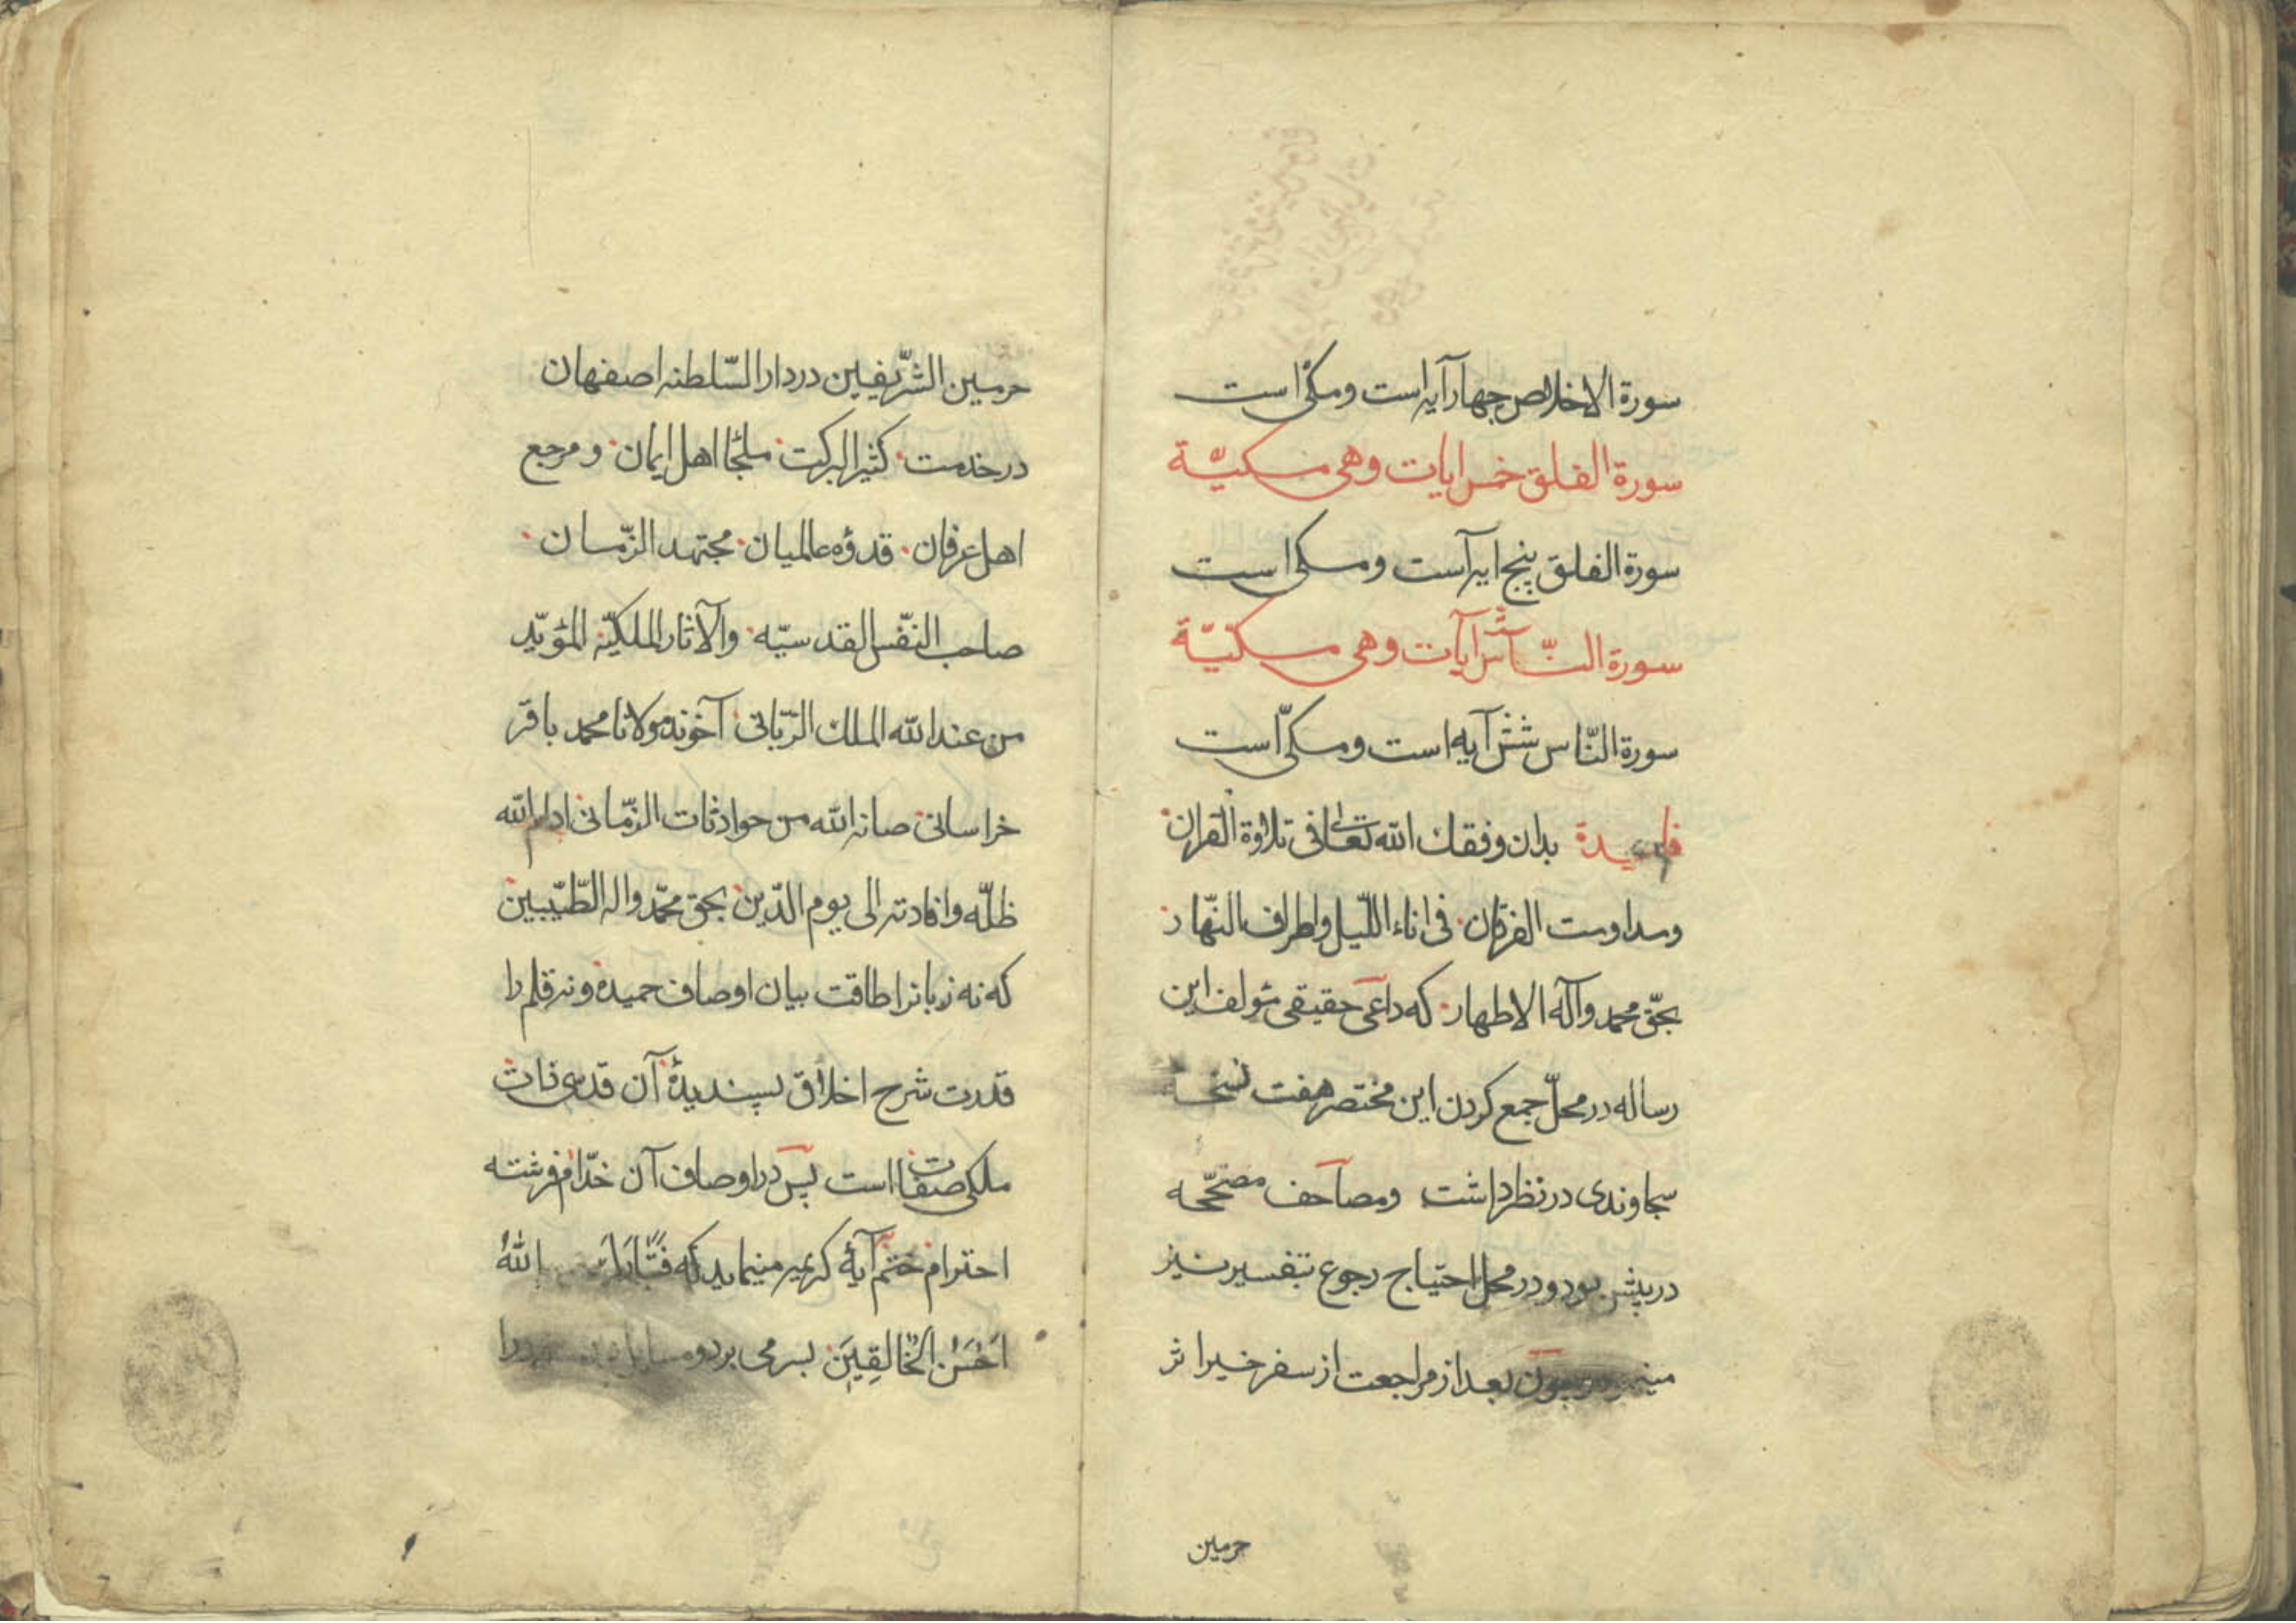 سورة الاخلاص چهار آیه است و مکّی است
سورة الفلق خمس ایات وهی مکیّة
سورة الفلق پنج ایه است و مکی است
سورة النّاس ستّ آیات وهی مکیّة
سورة النّاس شش آیه است و مکّی است
فایدة بدان وفقك الله تعالی فی تلاوة القران
ومداومت الفرقان فی اناء اللّیل واطراف النّهار
بحقّ محمد وآله الاطهار که داعی حقیقی مؤلف این
رساله در محلّ جمع کردن این مختصر هفت نسخه
سجاوندی در نظر داشت ومصاحف مصحّحه
در پیش بود ودر محل احتیاج رجوع بتفسیر نیز
چون بعد از مراجعت از سفر خیر اثر
حرمین
حرمین الشّریفین در دار السّلطنه اصفهان
در خدمت کثیر البرکت ملجأ اهل ایمان ومرجع
اهل عرفان قدوه عالمیان مجتهد الزّمان
صاحب النّفس القدسیّه والآثار الملکیّه المؤیّد
من عند الله الملك الرّبّانی آخوند مولانا محمد باقر
خراسانی صانه الله من حوادثات الزّمانی ادام الله
ظلّه وافادته الی یوم الدّین بحق محمّد واله الطّیّبین
که نه زبانرا طاقت بیان اوصاف حمیده ونه قلم را
قدرت شرح اخلاق پسندیدهٔ آن قدسی ذات
ملکی صفات است پس در اوصاف آن خدّام فرشته
احترام ختم بآیهٔ کریمه مینماید که فتبارك الله
اَحْسَنُ الْخَالِقِینَ بسر می برد و را